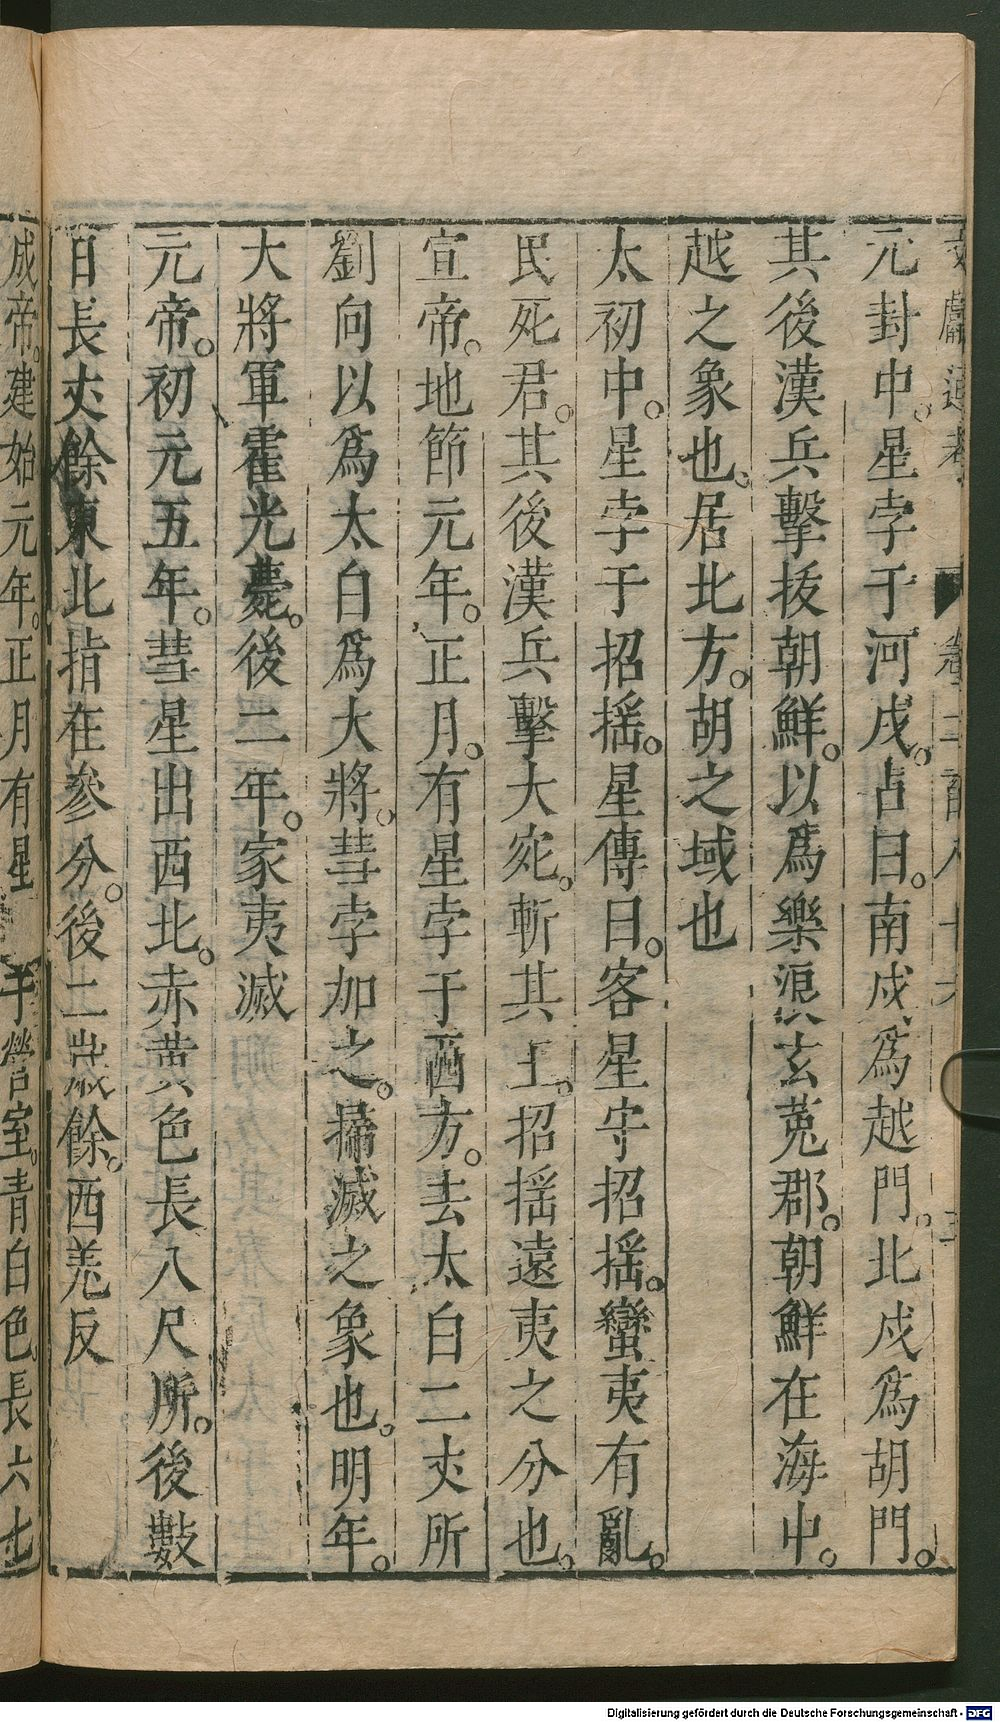 元封中。星孛于河戍。占曰。南戍爲越門。北戍爲胡門。
其後漢兵擊拔朝鮮。以爲樂浪玄菟郡。朝鮮在海中。
越之象也。居北方。胡之域也
太初中。星孛于招搖。星傳曰。客星守招搖。蠻夷有亂。
民死君。其後漢兵擊大宛。斬其王。招搖遠夷之分也。
宣帝。地節元年。正月。有星孛于酉方。去太白二丈所
劉向以爲太白爲大將。彗孛加之。掃滅之象也。明年。
大將軍霍光薨。後二年。家夷滅
元帝。初元五年。彗星出西北。赤黄色長八尺所。後數
日長丈餘東北指在參分。後二歲餘。西羌反
成帝。建始元年。正月有星孛于營室。青白色。長六七
Digitalisierung gefördert durch die Deutsche Forschungsgemeinschaft - DFG